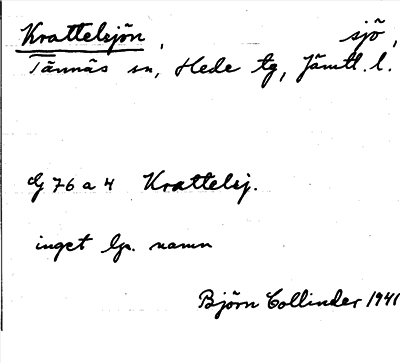 Krattelsjön, sjö,
Tännäs sn, Hede tg, Jämtl. l.
76 a 4 Krattelsj.
inget lp. namn
Björn Collinder 1941